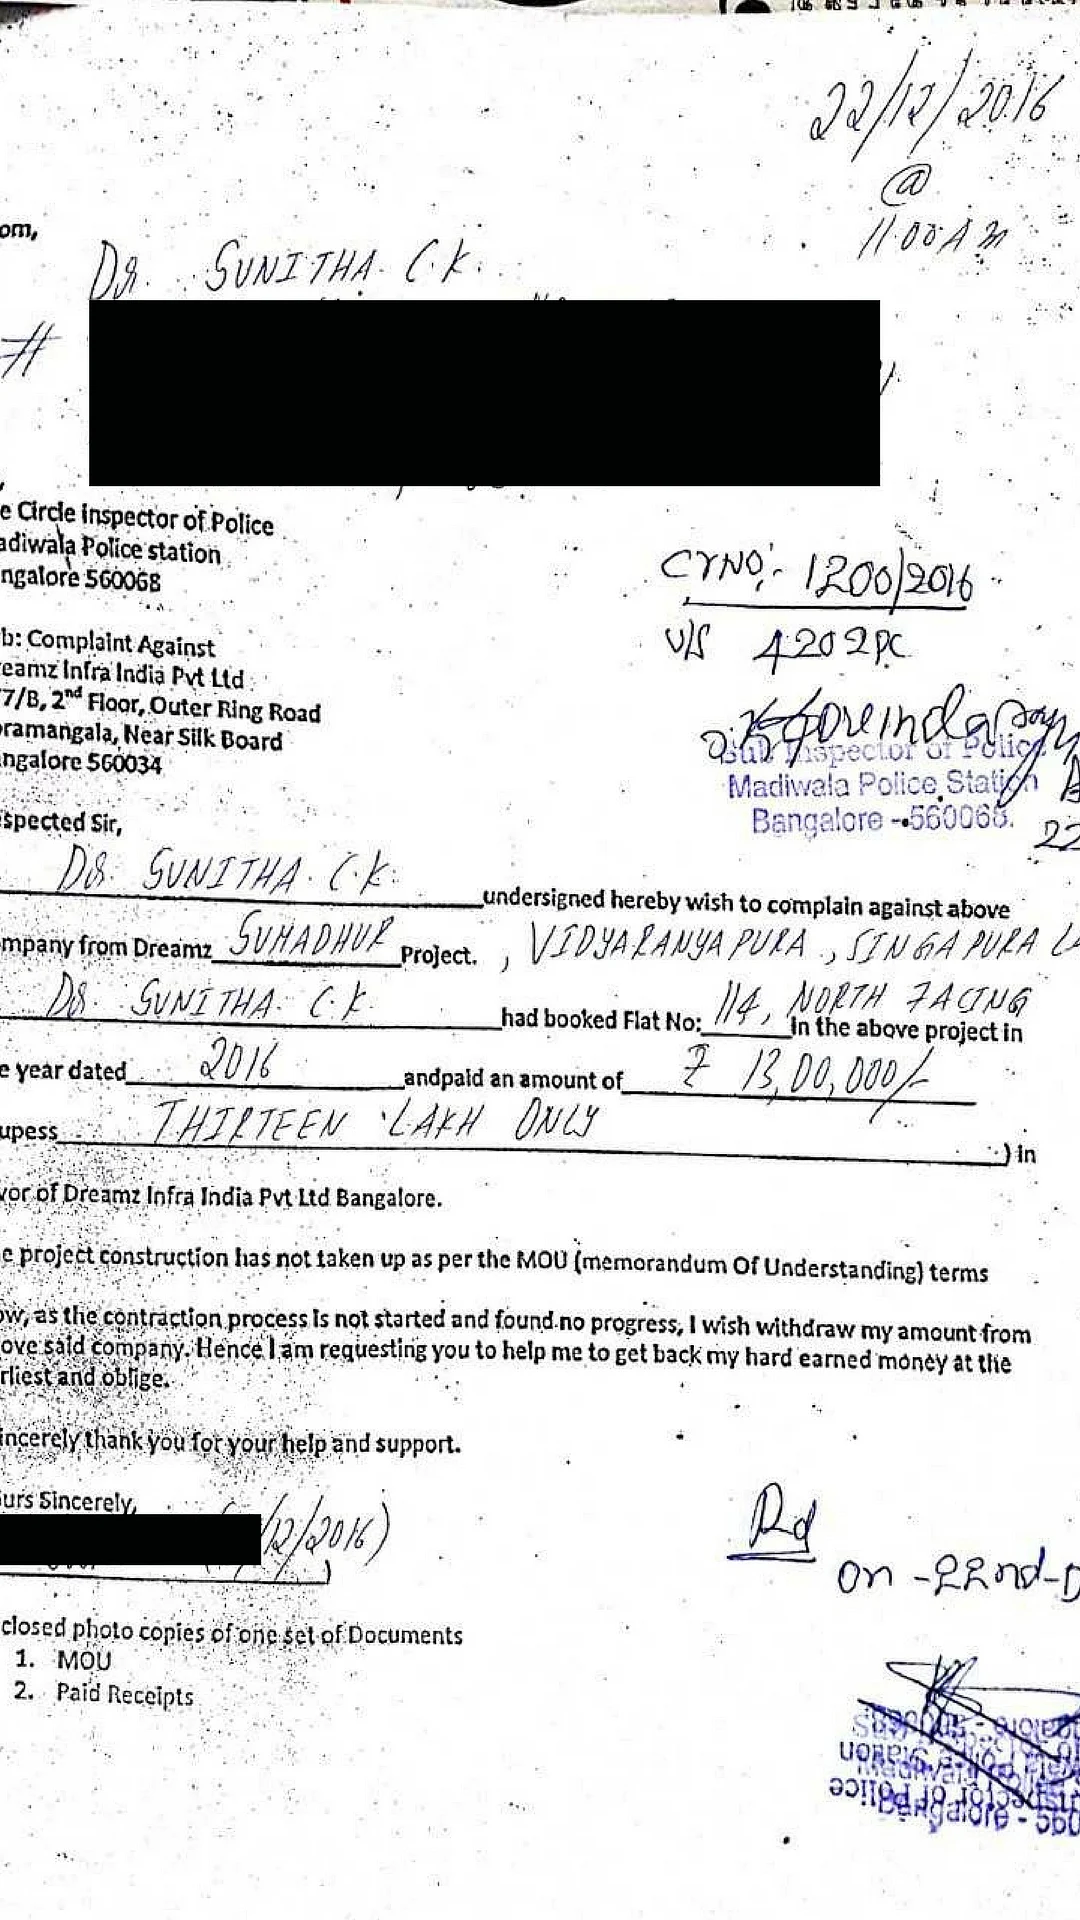 22/12/2016
@
11.00 A M
om,
Dr. SUNITHA. C.K.
#
e Circle Inspector of Police
adiwala Police station
ngalore 560068
CrNO:- 1200/2016
U/S 420 2PC
b: Complaint Against
eamz Infra India Pvt Ltd
7/B, 2nd Floor, Outer Ring Road
ramangala, Near Silk Board
ngalore 560034
Sub Inspector of Police
Madiwala Police Station
Bangalore - 560068.
22
spected Sir,
Dr. SUNITHA. C.K. undersigned hereby wish to complain against above
mpany from Dreamz SUMADHUR Project. , VIDYARANYAPURA, SINGAPURA
Dr. SUNITHA. C.K had booked Flat No: 114, NORTH FACING In the above project in
e year dated 2016 andpaid an amount of ₹ 13,00,000/-
upess THIRTEEN LAKH ONLY ) in
vor of Dreamz Infra India Pvt Ltd Bangalore.
e project construction has not taken up as per the MOU (memorandum Of Understanding) terms
ow, as the contraction process is not started and found no progress, I wish withdraw my amount from
ove said company. Hence I am requesting you to help me to get back my hard earned money at the
rliest and oblige.
incerely thank you for your help and support.
urs Sincerely,
/12/2016)
)
Rd
on -22nd-D
closed photo copies of one set of Documents
1. MOU
2. Paid Receipts